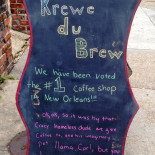 Krewe
du
Brew
We have been voted
the #1 Coffee shop
in New Orleans!!
* Ok, ok, so it was by that
crazy homeless dude we give
coffee to, and his imaginary
pet llama, Carl, but you